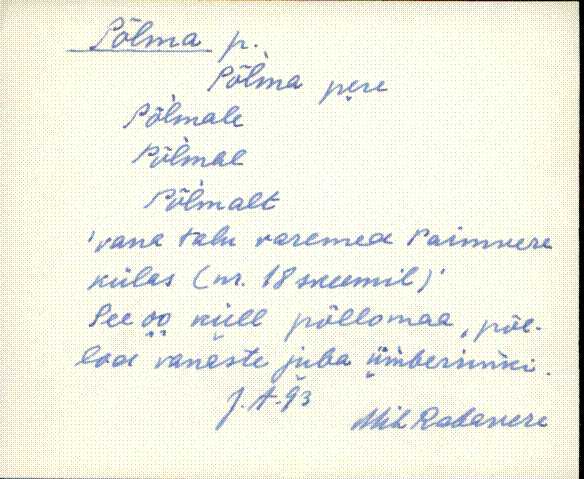 Põlma p.
Põlma pere
Põlmale
Põlmal
Põlmalt
'vana talu varemed Paimvere
külas (nr. 18 skeemil)'
See oo küll põllomaa, põl-
lod vanaste juba ümbersiniki.
J. A-93
Mih Rabavere